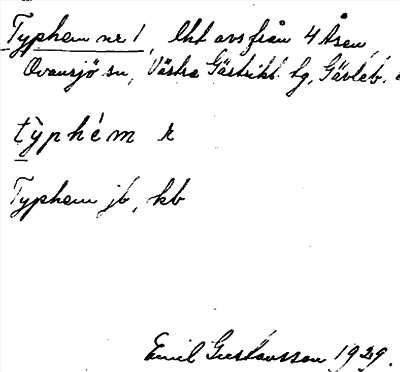 Typhem nr 1, lht avs från 4 Åsen,
Ovansjö sn, Västra Gästrikl. tg, Gävleb.
typhém r
Typhem jb, kb
Emil Gustavsson 1929.